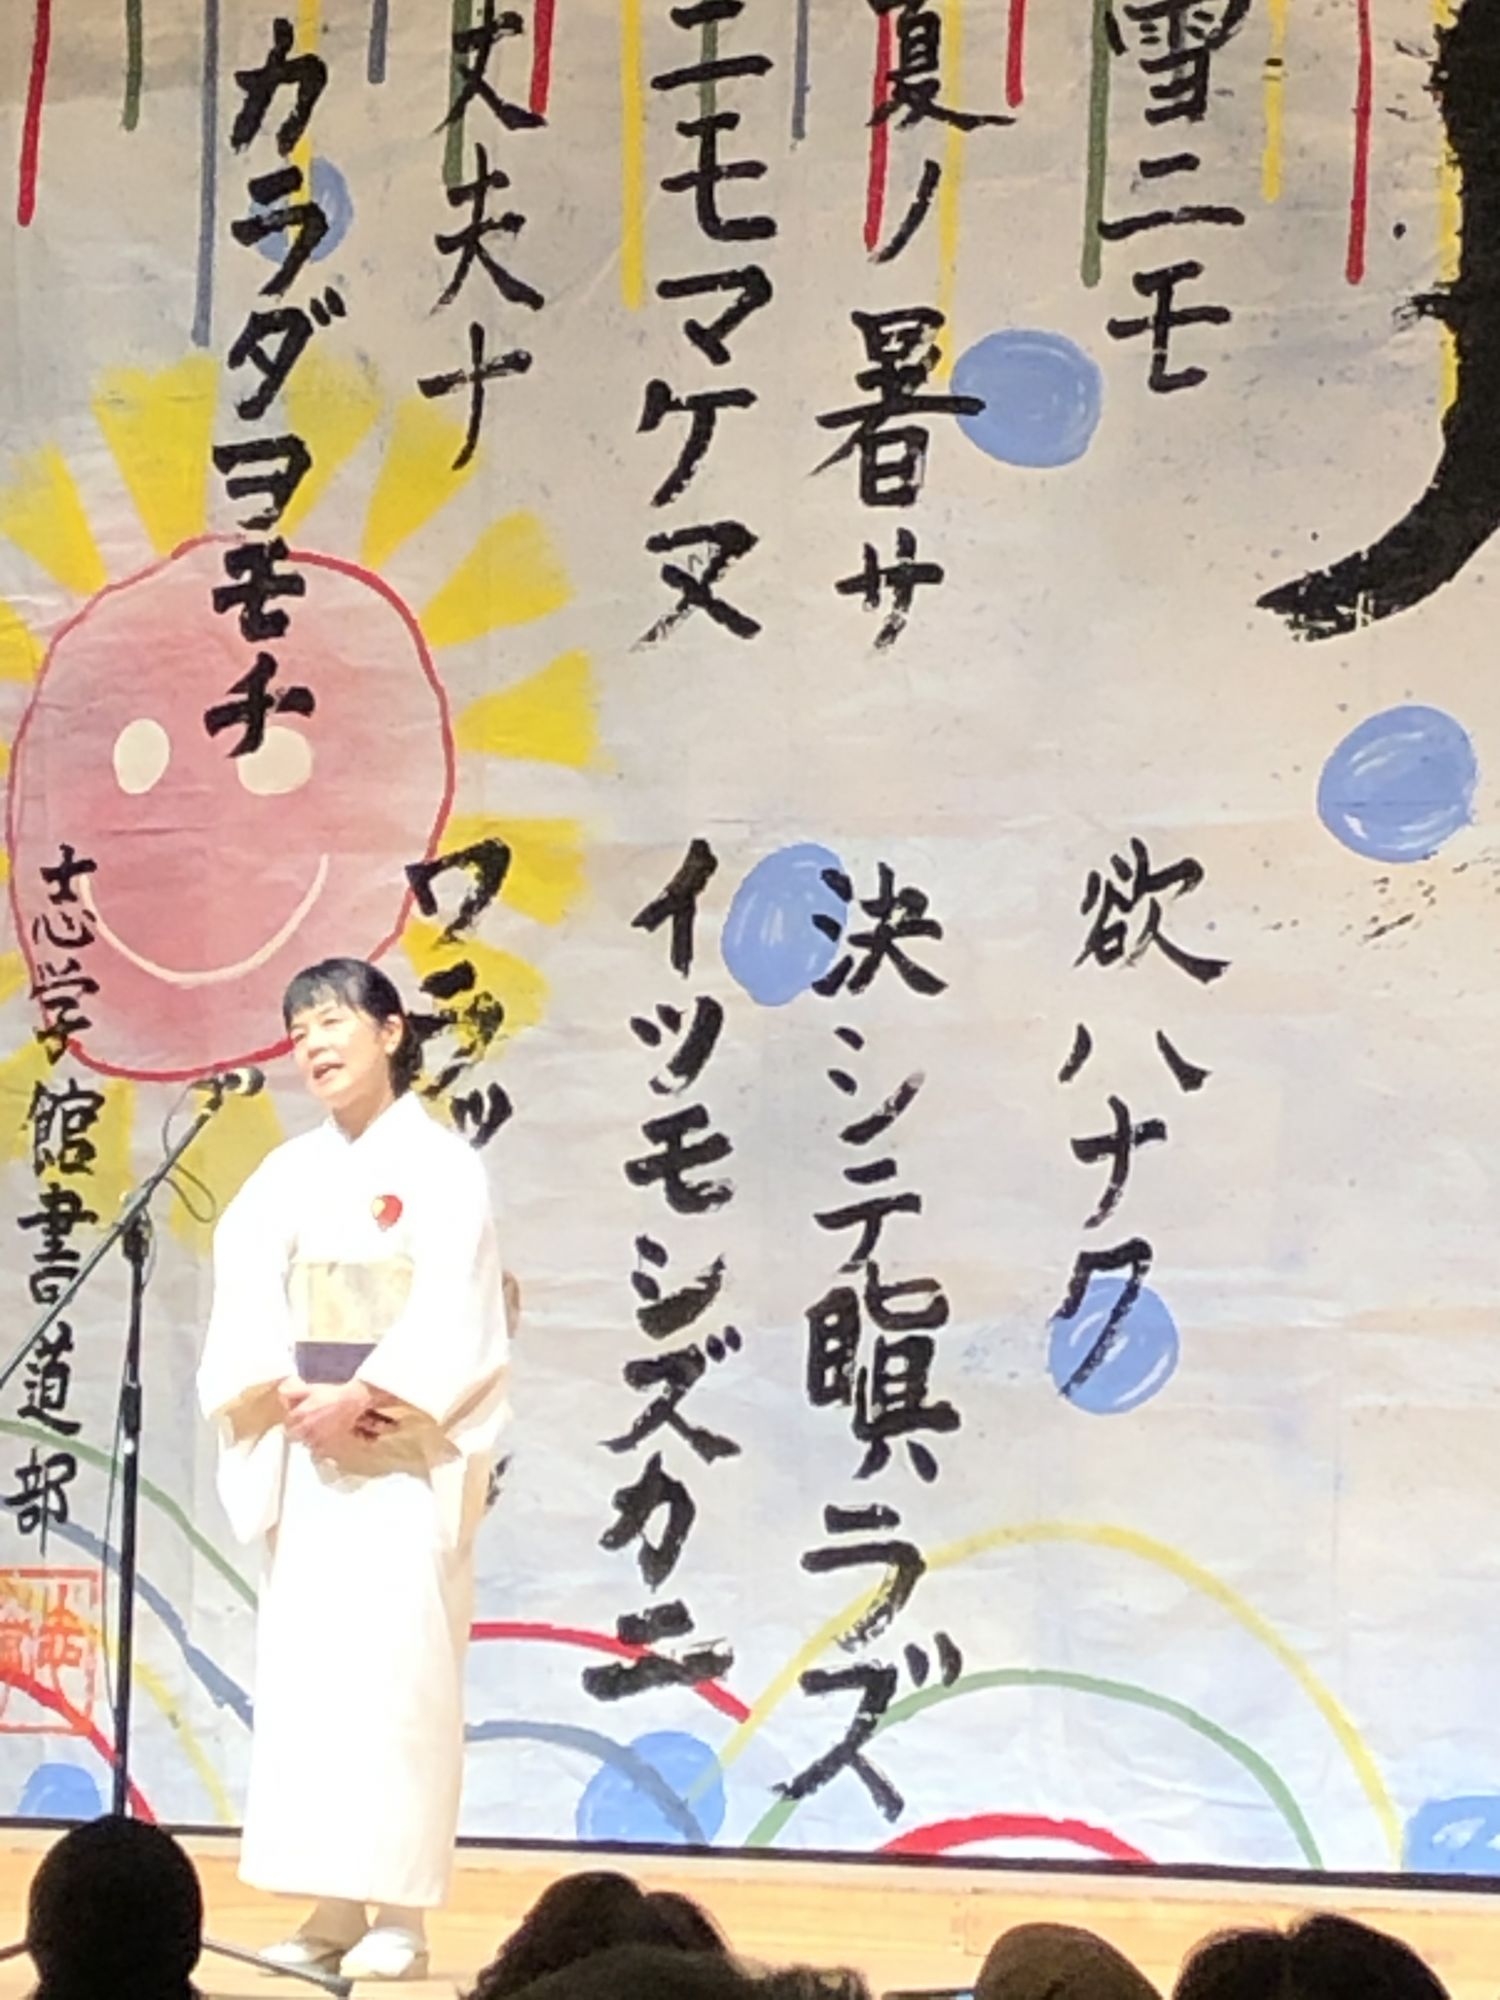 雪ニモ
夏ノ暑サ
ニモマケヌ
丈夫ナ
カラダヲモチ
欲ハナク
決シテ瞋ラズ
イツモシズカニ
ワラッ
志学館書道部